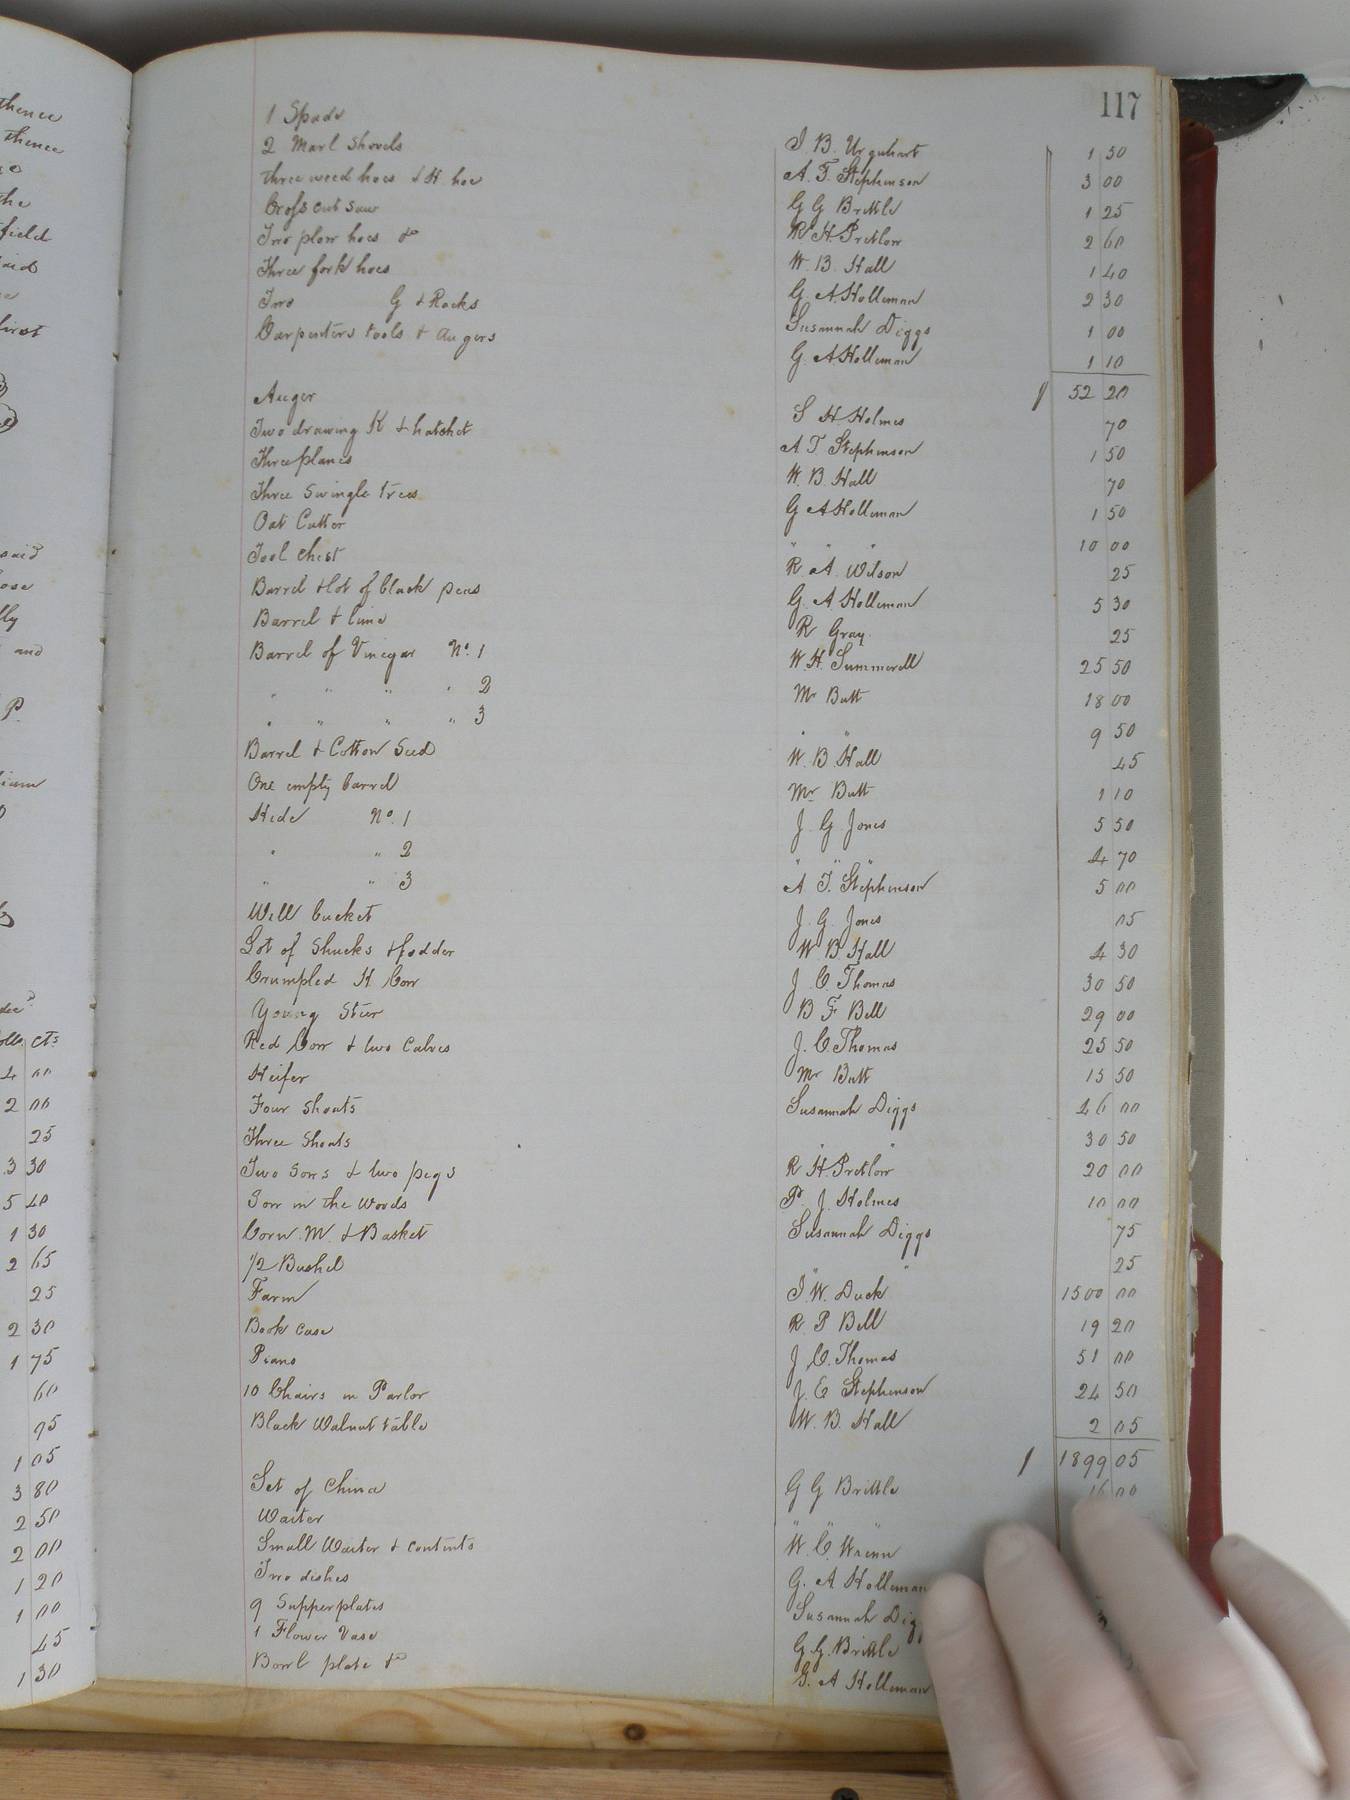 117
1 Spade J. B. Urquhart 1 50
2 Marl Shovels A. T. Stephenson 3 00
three weed hoes & H hoe G G Brittle 1 25
Cross cut Saw R H. Pretlow 2 60
Two plow hoes & W. B. Hall 1 40
Three fork hoes G. A Holleman 2 30
Two G & Racks Susannah Diggs 1 00
Carpenters tools & Augers G. A Holleman 1 10
52 20
Auger S H Holmes 70
Two drawing K & hatchet A T Stephenson 1 50
Three planes W. B. Hall 70
Three Swingle trees G A Holleman 1 50
Oat Cutter " " " 10 00
Tool Chest R. A. Wilson 25
Barrel & lot of black peas G. A Holleman 5 30
Barrel & lime R Gray 25
Barrel of Vinegar No. 1 W. H. Summerell 25 50
" " " " 2 Mr Butt 18 00
" " " " 3 " " 9 50
Barrel & Cotton Seed W. B. Hall 45
One empty barrel Mr Butt 1 10
Hide No. 1 J. G. Jones 5 50
" " 2 " " " 4 70
" " 3 A. T. Stephenson 5 00
Well bucket J. G. Jones 05
Lot of Shucks & fodder W B. Hall 4 30
Crumpled H Cow J. C. Thomas 30 50
Young Steer B F Bell 29 00
Red Cow & two Calves J. C. Thomas 25 50
Heifer Mr Butt 15 50
Four Shoats Susannah Diggs 46 00
Three Shoats " " 30 50
Two Sows & two pigs R H. Pretlow 20 00
Sow in the Woods P. J. Holmes 10 00
Corn. M. & Basket Susannah Diggs 75
1/2 Bushel " " 25
Farm J. W. Duck 1500 00
Book Case R. P Bell 19 20
Piano J. C. Thomas 51 00
10 Chairs in Parlor J. E Stephenson 24 50
Black Walnut table W. B. Hall 2 05
1899 05
Set of China G G Brittle 16 00
Waiter " " "
Small Waiter & contents W. C. Wrenn
Two dishes G. A Holleman
9 Supper plates Susannah
1 Flower Vase G. G. Brittle
Bowl plate & G. A Holleman
thence
thence
the
field
said
first
said
and
P.
cts
4 00
2 00
25
3 30
5 40
1 30
2 65
25
2 30
1 75
60
95
1 05
3 80
2 50
2 00
1 20
1 00
45
1 30